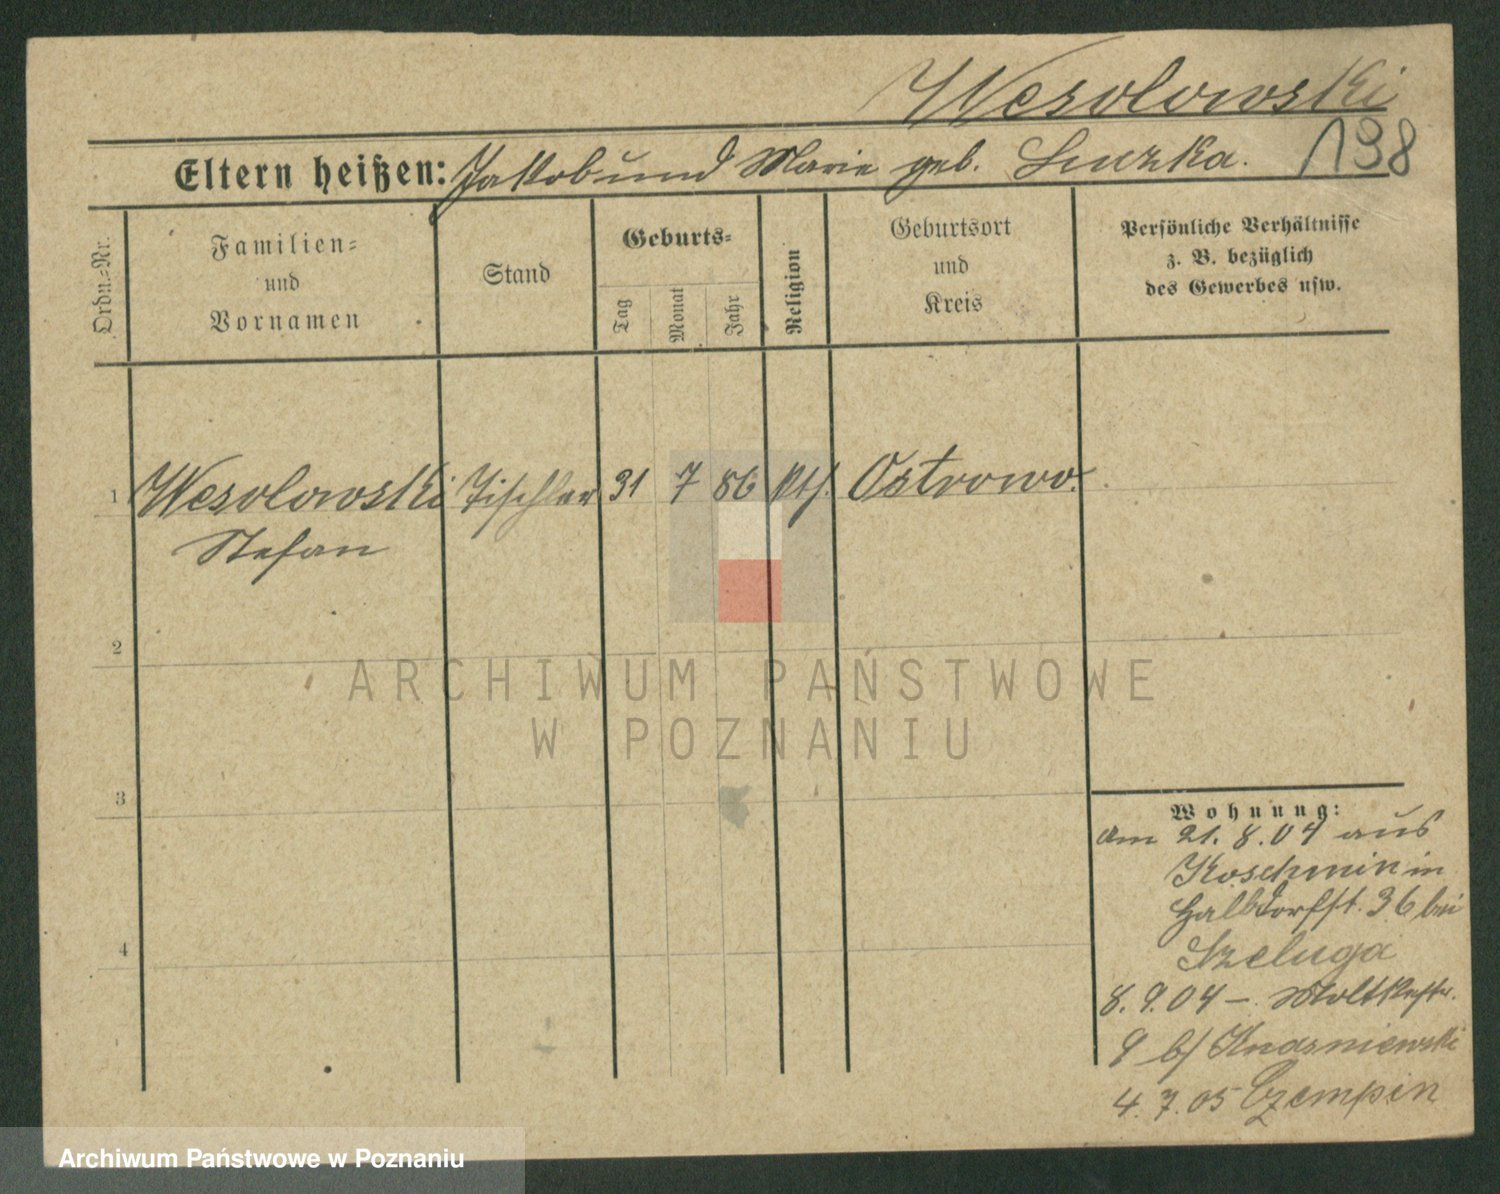 Wesolowski
Eltern heißen: Jakob und Marie geb. Luczka. 198
Ordn.-Nr.
Familien-
und
Vornamen
Stand
Geburts-
Tag
Monat
Jahr
Religion
Geburtsort
und
Kreis
Persönliche Verhältnisse
z. B. bezüglich
des Gewerbes usw.
1 Wesolowski Tischler 31 7 86 kth. Ostrowo.
Stefan
2
3
4
Wohnung:
Am 21. 8. 04 aus
Koschmin in
Halbdorfst. 36 bei
Szeluga
8. 9. 04 – Moltkestr.
9 b/ Knasniewski
4. 7. 05 Czempin
ARCHIWUM PAŃSTWOWE
W POZNANIU
Archiwum Państwowe w Poznaniu